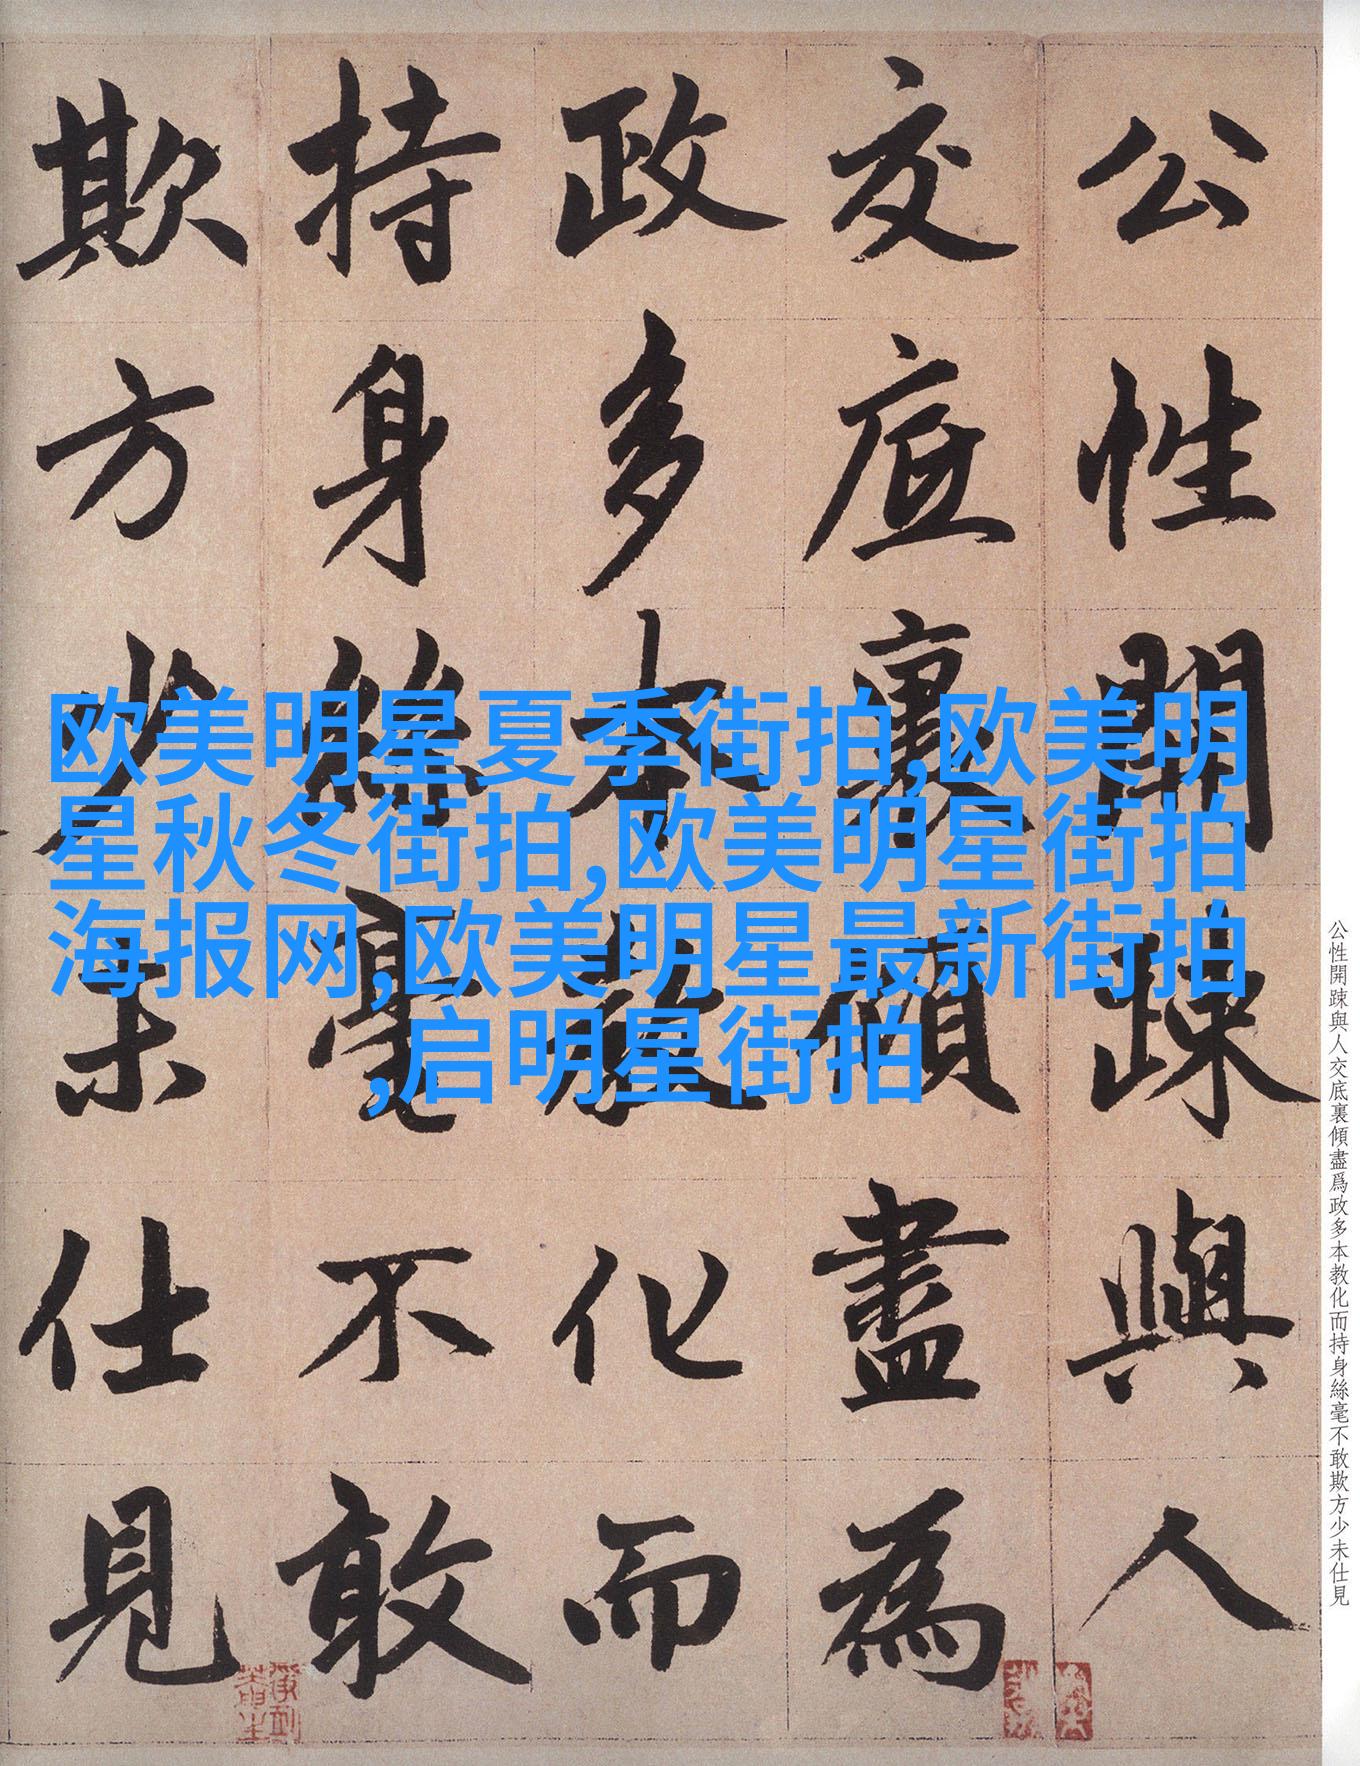 公性開踈與人
交底裏傾盡為
政多本教化而
持身絲毫不敢
欺方少未仕見
欧美明星夏季街拍,欧美明
星秋冬街拍,欧美明星街拍
海报网,欧美明星最新街拍
,启明星街拍
公性開踈與人交底裏傾盡爲政多本教化而持身絲毫不敢欺方少未仕見